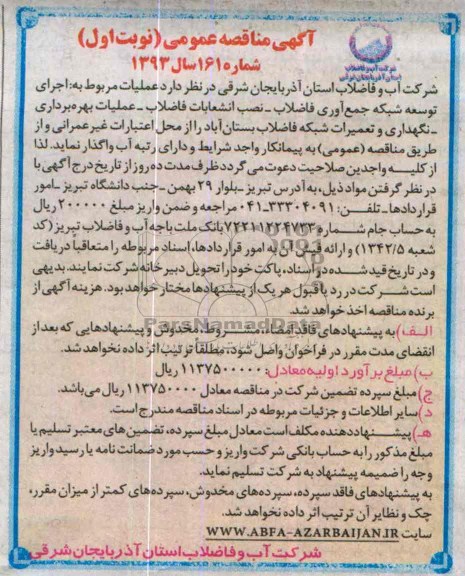 آگهی مناقصه عمومی (نوبت اول)
شماره ۱۶۱ سال ۱۳۹۳
شرکت آب و فاضلاب
استان آذربایجان شرقی
شرکت آب و فاضلاب استان آذربایجان شرقی در نظر دارد عملیات مربوط به: اجرای
توسعه شبکه جمع‌آوری فاضلاب ـ نصب انشعابات فاضلاب ـ عملیات بهره‌برداری
ـ نگهداری و تعمیرات شبکه فاضلاب بستان‌آباد را از محل اعتبارات غیرعمرانی و از
طریق مناقصه (عمومی) به پیمانکار واجد شرایط و دارای رتبه آب واگذار نماید. لذا
از کلیه واجدین صلاحیت دعوت می‌گردد ظرف مدت ده روز از تاریخ درج آگهی با
در نظر گرفتن مواد ذیل، به آدرس تبریز ـ بلوار ۲۹ بهمن ـ جنب دانشگاه تبریز ـ امور
قراردادها ـ تلفن: ۳۳۳۰۴۰۹۱-۰۴۱ مراجعه و ضمن واریز مبلغ ۲۰۰۰۰۰ ریال
به حساب جام شماره ۷۲۲۱۱۲۲۴۷۳۳ بانک ملت باجه آب و فاضلاب تبریز (کد
شعبه ۱۳۴۲/۵) و ارائه فیش آن به امور قراردادها، اسناد مربوطه را متعاقباً دریافت
و در تاریخ قید شده در اسناد، پاکت خود را تحویل دبیرخانه شرکت نمایند. بدیهی
است شرکت در رد یا قبول هر یک از پیشنهادها مختار خواهد بود. هزینه آگهی از
برنده مناقصه اخذ خواهد شد.
الف) به پیشنهادهای فاقد امضاء، مشروط، مخدوش و پیشنهادهایی که بعد از
انقضای مدت مقرر در فراخوان واصل شود، مطلقاً ترتیب اثر داده نخواهد شد.
ب) مبلغ برآورد اولیه معادل: ۱۱۳۷۵۰۰۰۰۰ ریال
ج) مبلغ سپرده تضمین شرکت در مناقصه معادل ۱۱۳۷۵۰۰۰۰ ریال می‌باشد.
د) سایر اطلاعات و جزئیات مربوطه در اسناد مناقصه مندرج است.
هـ) پیشنهاددهنده مکلف است معادل مبلغ سپرده، تضمین‌های معتبر تسلیم یا
مبلغ مذکور را به حساب بانکی شرکت واریز و حسب مورد ضمانت نامه یا رسید واریز
وجه را ضمیمه پیشنهاد به شرکت تسلیم نماید.
به پیشنهادهای فاقد سپرده، سپرده‌های مخدوش، سپرده‌های کمتر از میزان مقرر،
چک و نظایر آن ترتیب اثر داده نخواهد شد.
سایت WWW.ABFA-AZARBAIJAN.IR
شرکت آب و فاضلاب استان آذربایجان شرقی